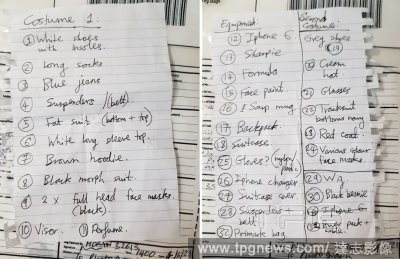 Costume 1:
① White shoes
with marks.
② Long socks
③ Blue jeans
④ Suspenders /(belt)
⑤ Fat suit (bottom + top)
⑥ White long sleeve top.
⑦ Brown hoodie.
⑧ Black morph suit.
⑨ 2 x full head face masks.
(black).
⑩ Visor. ⑪ Perfume.
Equipment:
⑫ Iphone 6
⑬ Sharpie
⑭ Formats
⑮ Face paint
⑯ E Soup mug
⑰ Backpack.
⑱ Suitcase.
㉕ Gloves?
㉖ Iphone charger
㉗ Suitcase cover.
㉘ Suspenders +
belt
㉜ Primark bag
Second
Costume:
Grey shoes
⑲
⑳ Cream
hat
㉑ Glasses
㉒ Tracksuit
bottoms navy
㉓ Red coat
㉔ Various colour
face masks
㉙ Wig
㉚ Black beanie
Iphone 6
www.tpgnews.com/達志影像